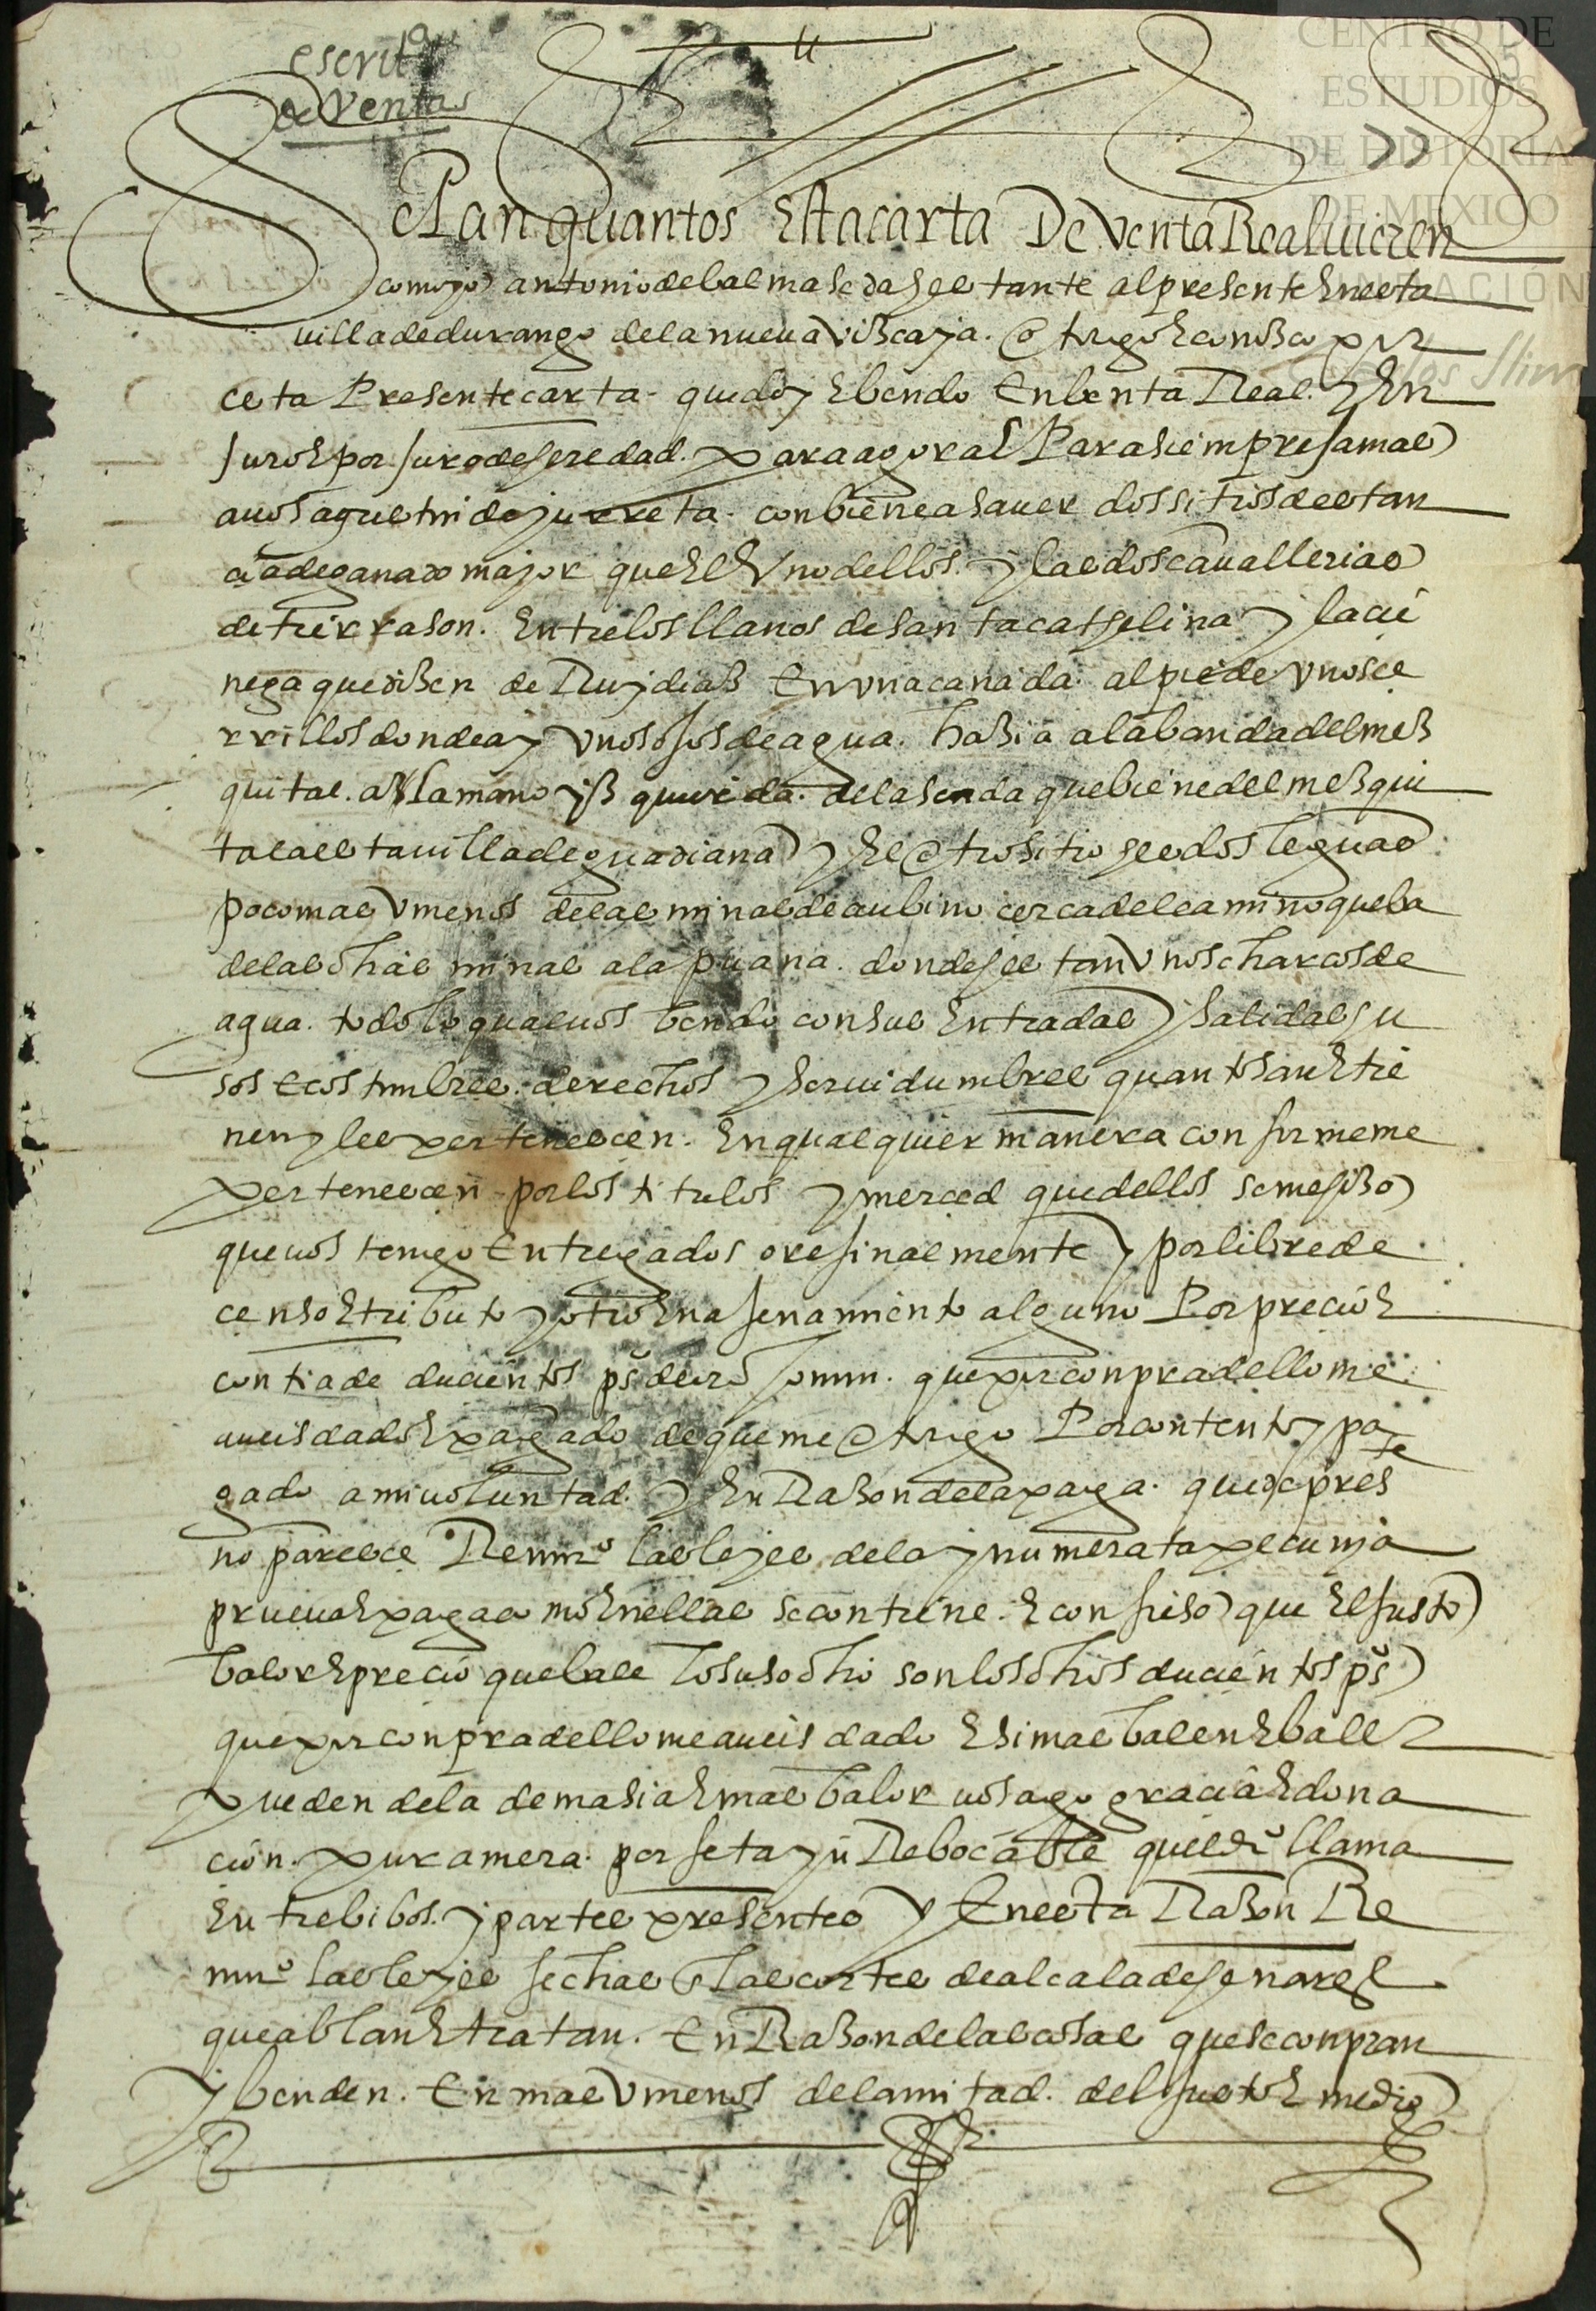 escritª
de venta
CENTRO DE
ESTUDIOS
DE HISTORIA
DE MEXICO
FUNDACIÓN
Carlos Slim
Sepan quantos Esta carta De Venta Real vieren
como yo antonio de balmaseda estante al presente En esta
villa de durango de la nueva Viscaya. otorgo E conosco por
esta Presente carta. que doy E bendo En benta Real. y En
juro E por juro de heredad. para agora E Para siempre jamas
a vos agustin de jurreta. conbiene a saver dos sitios de estan
cia de ganado mayor que El Vno dellos. y las dos cavallerias
de tierra son. Entre los llanos de santa cathelina y la cie
nega que disen de Ruy dias En vna canada al pie de vnos ce
rrillos donde ay vnos ojos de agua. hasia a la banda del mes
quital. a la mano ysquierda. de la senda que biene del mesqui
tal a esta villa de guadiana y El otro sitio es dos leguas
poco mas V menos de las minas de aubino cerca del camino que ba
de las dhas minas a la puana. donde estan Vnos charcos de
agua. todo lo qual vos bendo con sus Entradas y salidas u
sos e costumbres. derechos y servidumbres quantos an E tie
nen y les pertenescen. En qualquier manera conforme me
pertenescen por los titulos y merced que dellos se me hiso
que vos tengo Entregados orejinalmente y por libre de
censo E tributo y otro Enajenamiento alguno Por precio E
contia de ducientos ps de oro comun. que por conpra dello me
aveis dado E pagado de que me otorgo Por contento y pa
gado a mi voluntad. y En Rason de la paga. que de preste
no paresce Renunº las leyes de la ynumerata pecunia
prueva E paga como En ellas se contiene. E confieso que El justo
balor E precio que bale lo susodho son los dhos ducientos ps
que por conpra dello me aveis dado E si mas balen E baler
pueden de la demasia E mas balor vos ago gracia E dona
cion. pura mera. perfeta y inRebocable que el dro llama
Entre bibos. y partes presentes y En esta Rason Re
nunº las leyes fechas En las cortes de alcala de henares
que ablan E tratan. En Rason de las cosas que se conpran
y benden. En mas V menos de la mitad. del justo E medio